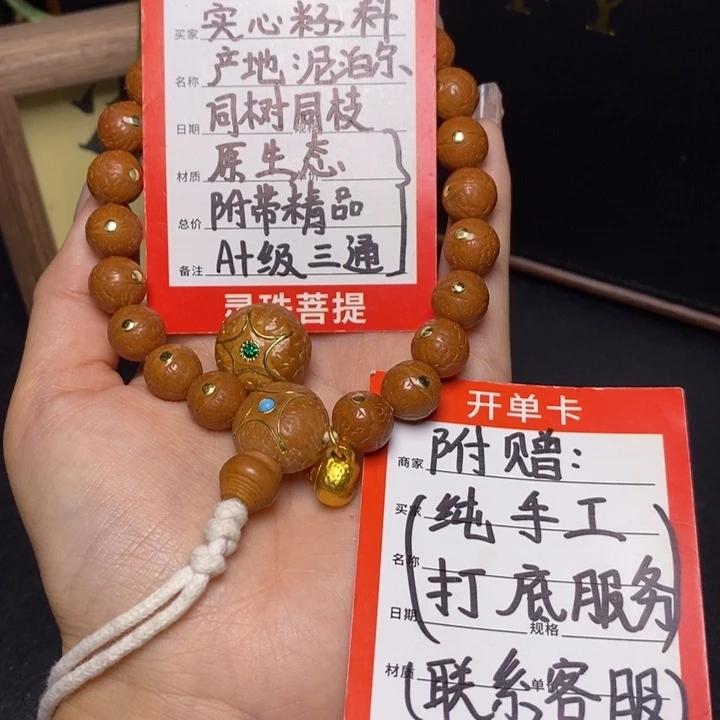 买家 实心籽料
名称 产地:泥泊尔
日期 同树同枝 规格
材质 原生态 单价
总价 附带精品
备注 A+级三通
灵珠菩提
开单卡
商家 附赠:
买家 (纯手工
名称 打底服务)
日期 规格
材质 (联系客服) 单价